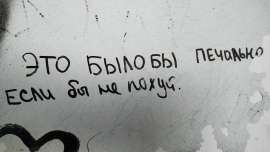 ЭТО БЫЛО БЫ ПЕЧАЛЬНО
ЕСЛИ БЫ НЕ ПОХУЙ.